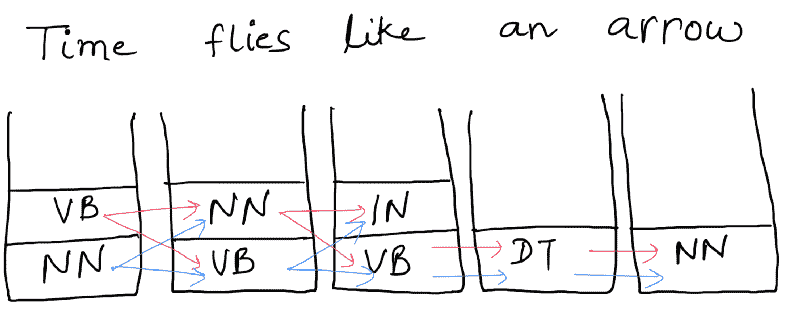 Time flies like an arrow
VB NN IN
NN VB VB DT NN